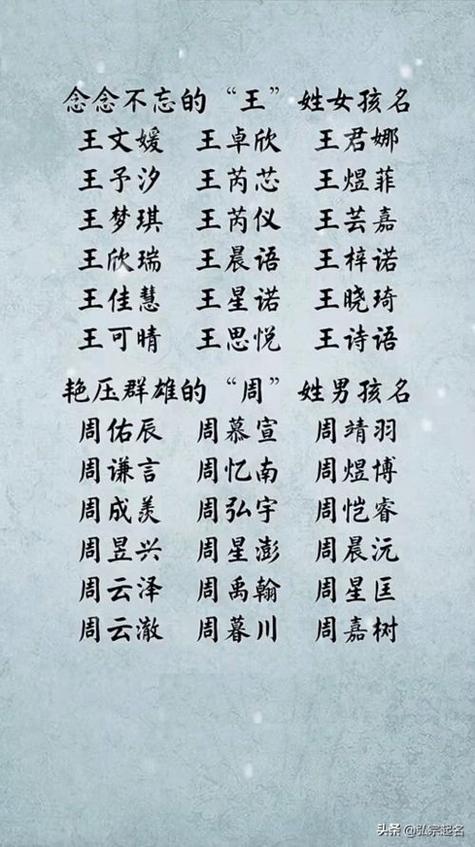 念念不忘的“王”姓女孩名
王文媛 王卓欣 王君娜
王予汐 王芮芯 王煜菲
王梦琪 王芮仪 王芸嘉
王欣瑞 王晨语 王梓诺
王佳慧 王星诺 王晓琦
王可晴 王思悦 王诗语
艳压群雄的“周”姓男孩名
周佑辰 周慕宣 周靖羽
周谦言 周忆南 周煜博
周成羡 周弘宇 周恺睿
周昱兴 周星澎 周晨沅
周云泽 周禹翰 周星匡
周云澈 周暮川 周嘉树
头条 @弘宗起名